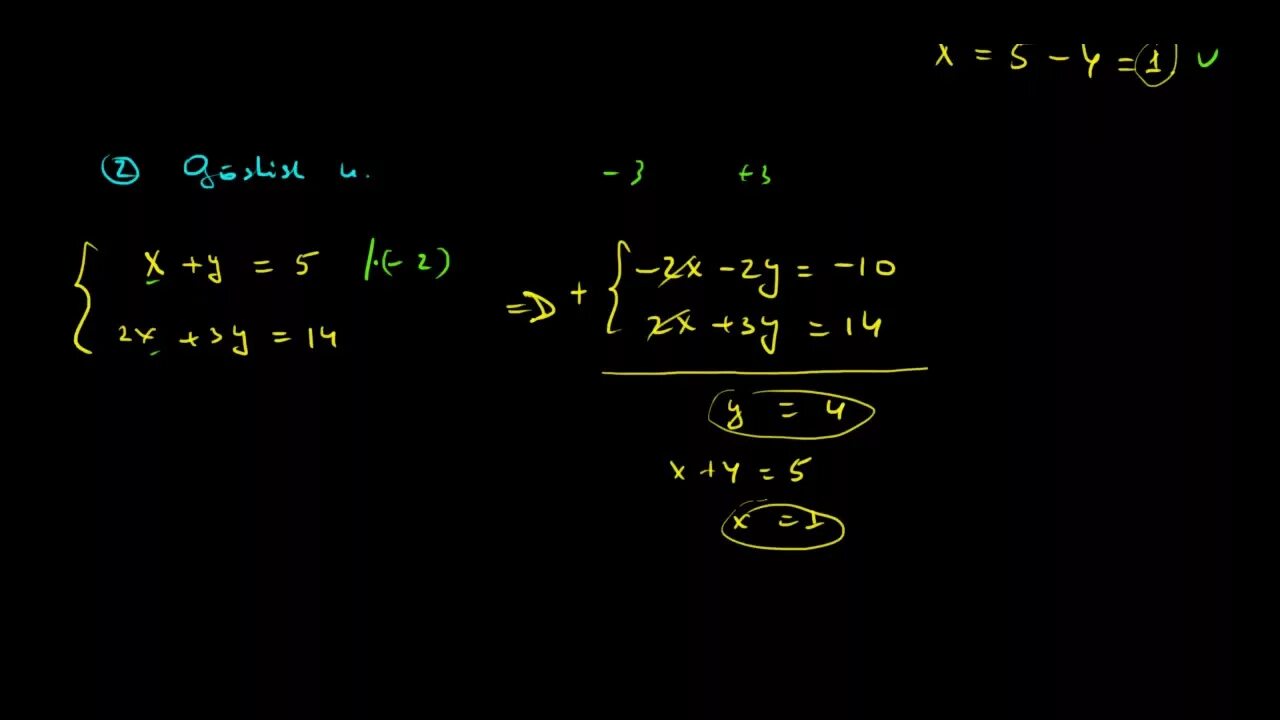 x = 5 - 4 = 1
② Qo'shish u.
-3 +3
x + y = 5 /·(-2)
2x + 3y = 14
=> + -2x - 2y = -10
2x + 3y = 14
y = 4
x + 4 = 5
x = 1